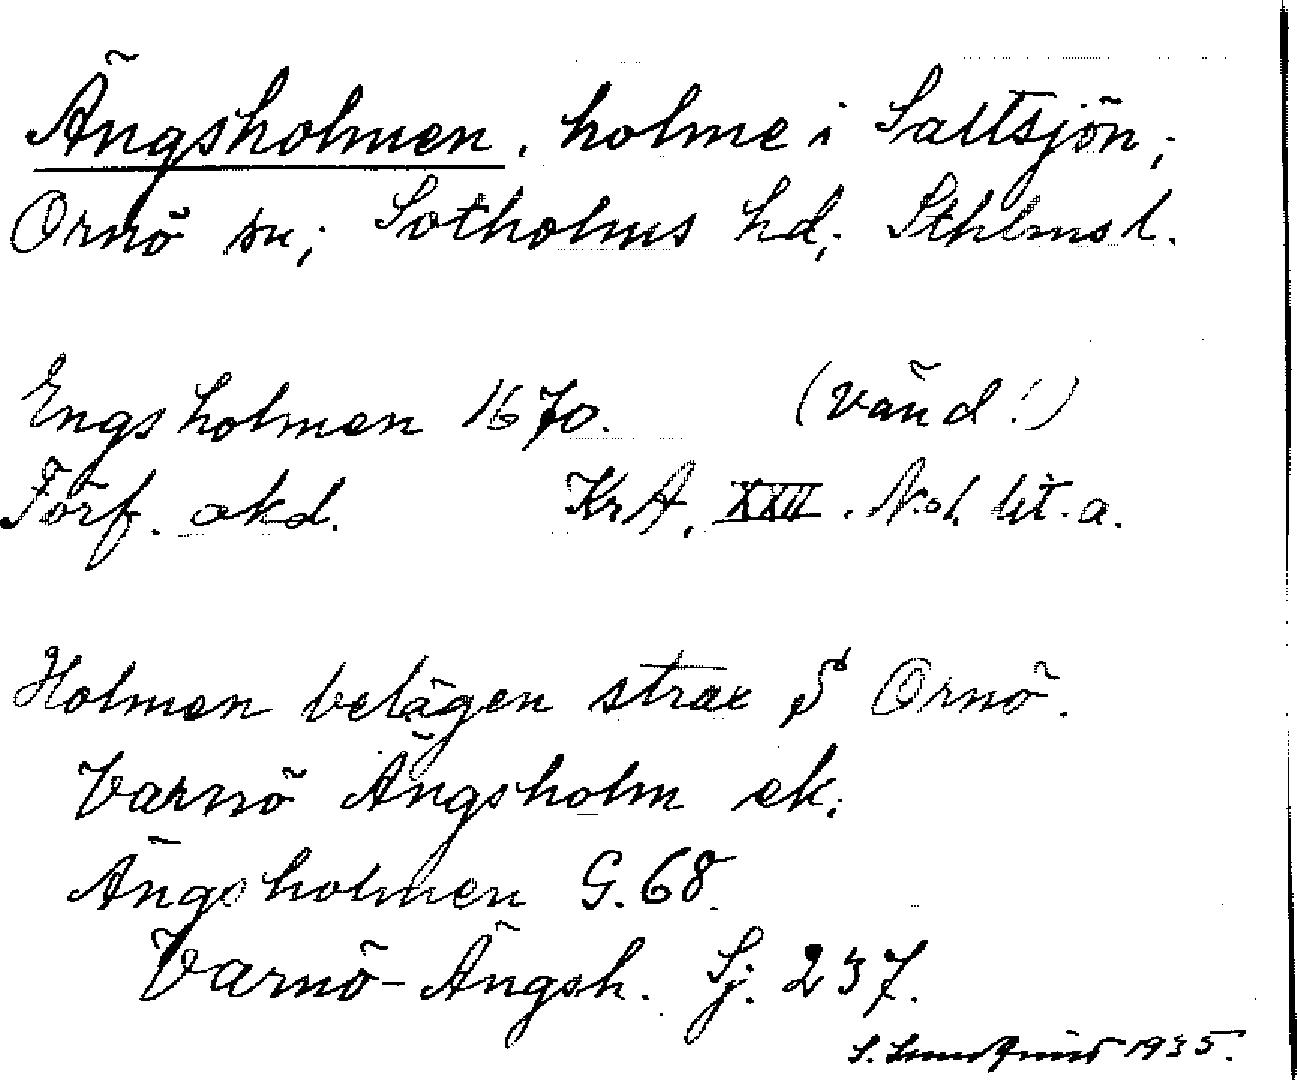 Ängsholmen, holme i Saltsjön;
Ornö sn; Sotholms hd; Sthlms l.
Engsholmen 1670. (vänd!)
Förf. okd. KrA. XXII. N:o1. lit. a.
Holmen belägen strax S Ornö.
Varnö Ängsholm ek.
Ängsholmen G. 68.
Varnö-Ängsh. Sj. 237.
S. 1935.